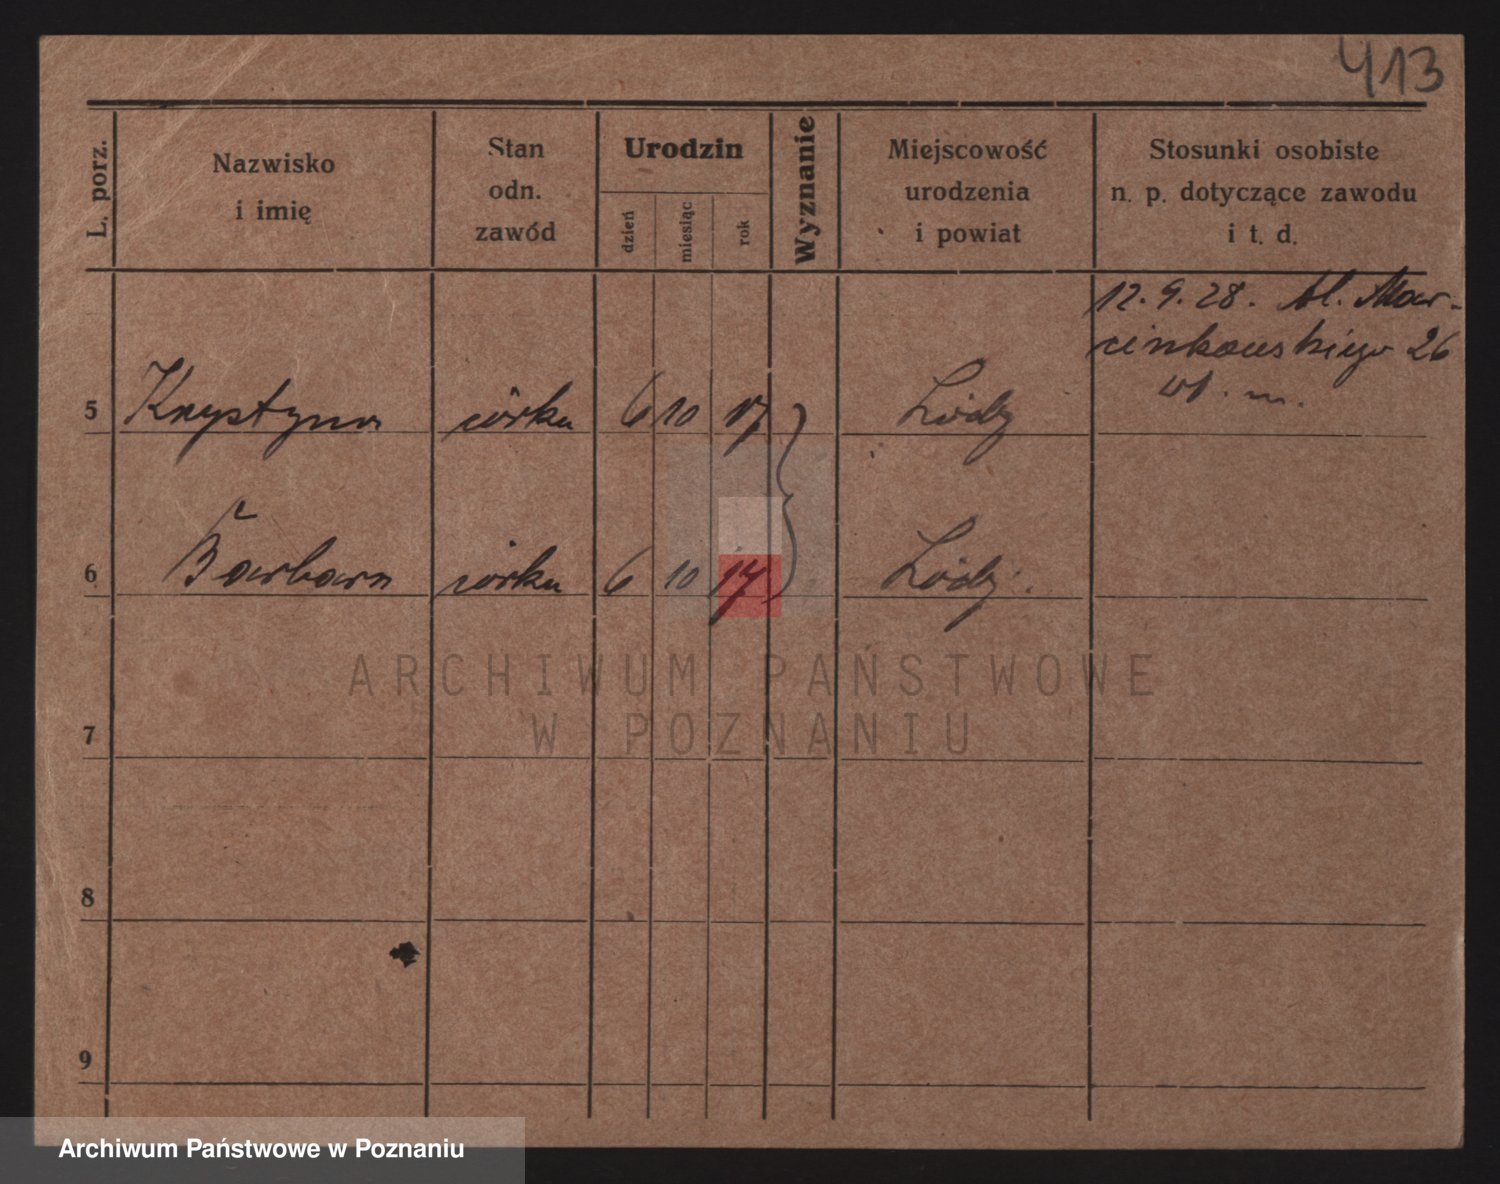 413
L. porz.
Nazwisko
i imię
Stan
odn.
zawód
Urodzin
dzień
miesiąc
rok
Wyznanie
Miejscowość
urodzenia
i powiat
Stosunki osobiste
n. p. dotyczące zawodu
i t. d.
12. 9. 28. Al. Mar-
cinkowskiego 26
wł. m.
5 Krystyna córka 6 10 17 Łódź
6 Barbara córka 6 10 17 Łódź.
7
8
9
ARCHIWUM PAŃSTWOWE
W POZNANIU
Archiwum Państwowe w Poznaniu